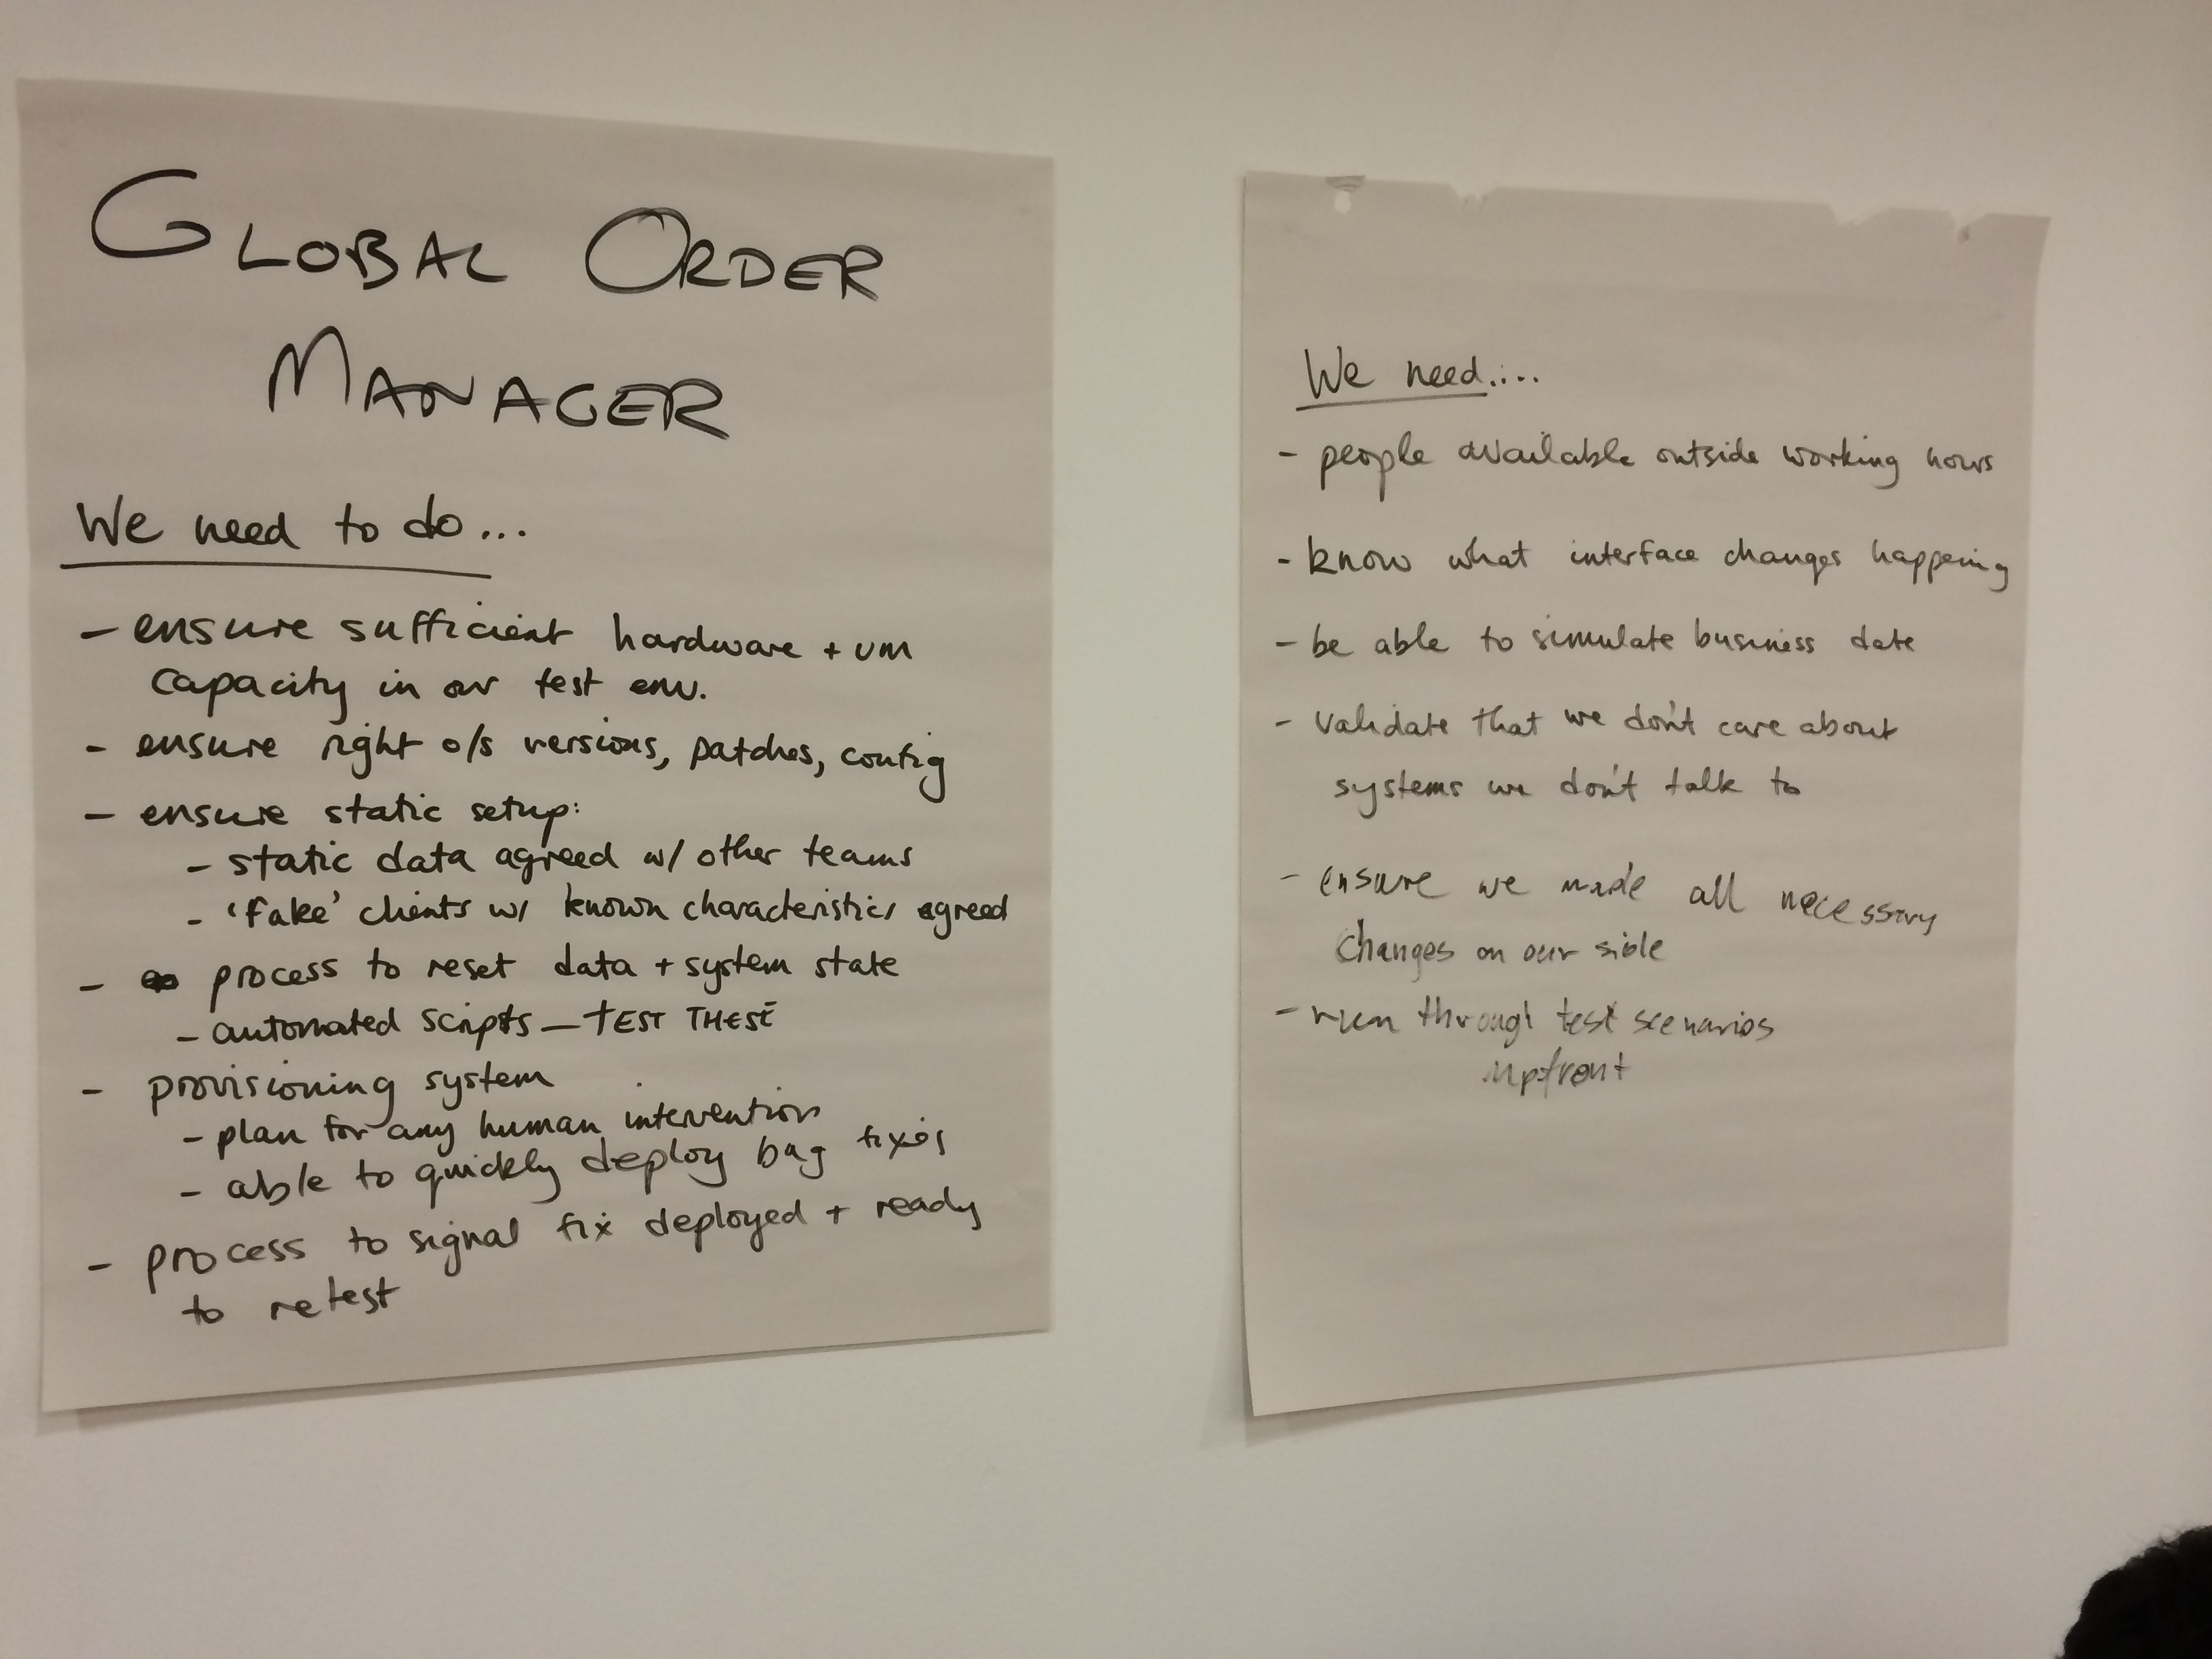 GLOBAL ORDER
MANAGER
We need to do...
- ensure sufficient hardware + VM
capacity in our test env.
- ensure right o/s versions, patches, config
- ensure static setup:
- static data agreed w/ other teams
- 'fake' clients w/ known characteristics agreed
- process to reset data + system state
- automated scripts - TEST THESE
- provisioning system
- plan for any human intervention
- able to quickly deploy bug fixes
- process to signal fix deployed + ready
to retest
We need....
- people available outside working hours
- know what interface changes happening
- be able to simulate business date
- validate that we don't care about
systems we don't talk to
- ensure we made all necessary
changes on our side
- run through test scenarios
upfront